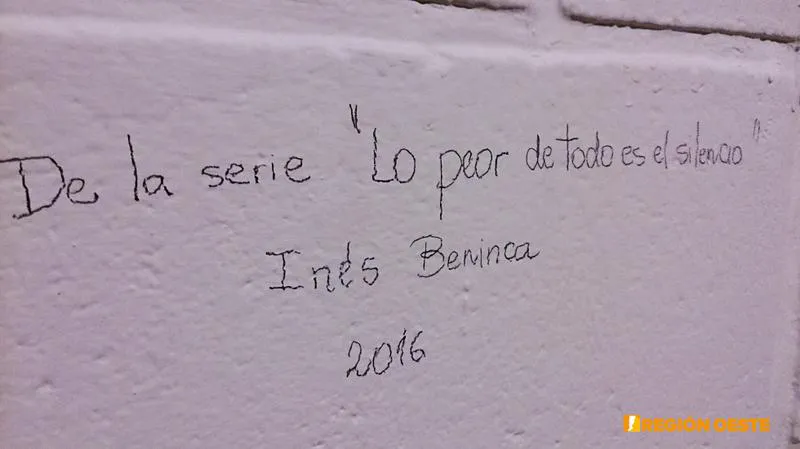 De la serie "Lo peor de todo es el silencio"
Inés Beninca
2016
REGIÓN OESTE